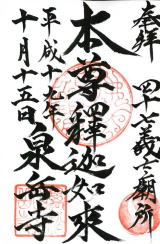 奉拝
四十七義士廟所
本尊釋迦如来
平成十七年
十月十五日
泉岳寺